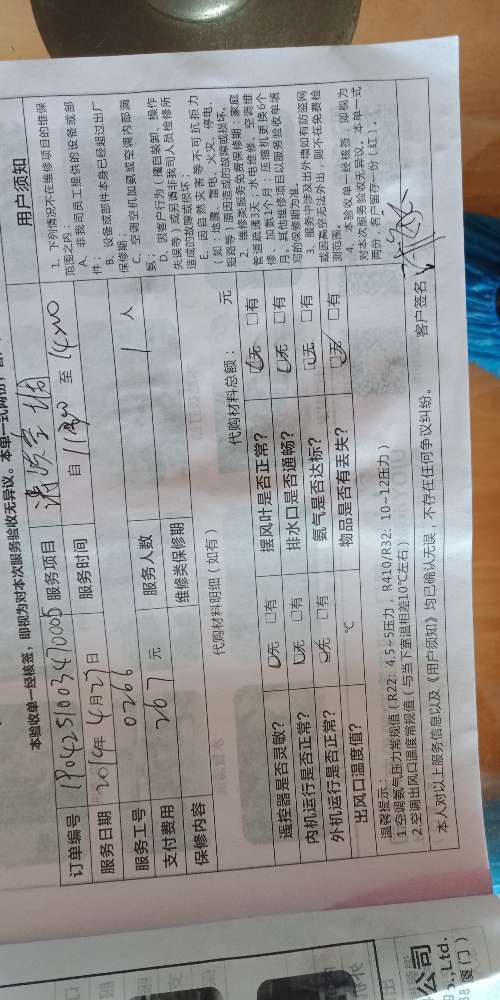 本验收单一经核签，即视为对本次服务验收无异议。本单一式两份，
订单编号 服务项目 清洗空调
服务日期 2019年4月27日 服务时间 自 至
服务工号 0266 服务人数 1 人
支付费用 267 元 维修类保修期
保修内容
代购材料明细（如有） 代购材料总额： 元
遥控器是否灵敏？ 无 有 摆风叶是否正常？ 无 有
内机运行是否正常？ 无 有 排水口是否通畅？ 无 有
外机运行是否正常？ 无 有 氨气是否达标？ 无 有
出风口温度值？ ℃ 物品是否有丢失？ 无 有
温馨提示：
1.空调氨气压力常规值（R22：4.5~5压力，R410/R32：10~12压力）
2.空调出风口温度常规值（与当下室温相差10℃左右）
本人对以上服务信息以及《用户须知》均已确认无误，不存在任何争议纠纷。 客户签名
用户须知
1、下列情况不在维修项目的维保
范围之内：
A、非我司员工提供的设备或部
件；
B、设备或部件本身已经超过出厂
保修期；
C、空调空机加氨或空调内部漏
氨；
D、因客户行为（擅自装卸、操作
失误等）或另请非我司人员检修所
造成的故障或损坏；
E、因自然灾害等不可抗拒力
（如：地震、雷电、火灾、停电、
短路等）原因造成的故障或损坏。
2、维修类服务免费保修期：家庭
管道疏通3天；水电维修、空调维
修、加氨1个月；压缩机更换6个
月。其他维修项目以服务验收单填
写的保修期为准。
3、服务中涉及出外墙如有防盗网
或因高空无法外出，则不在免费检
测范围。
4、本验收单一经核签，即视为
对本次服务验收无异议。本单一式
两份，客户留存一份（红）。
公司
Ltd.
厦门）